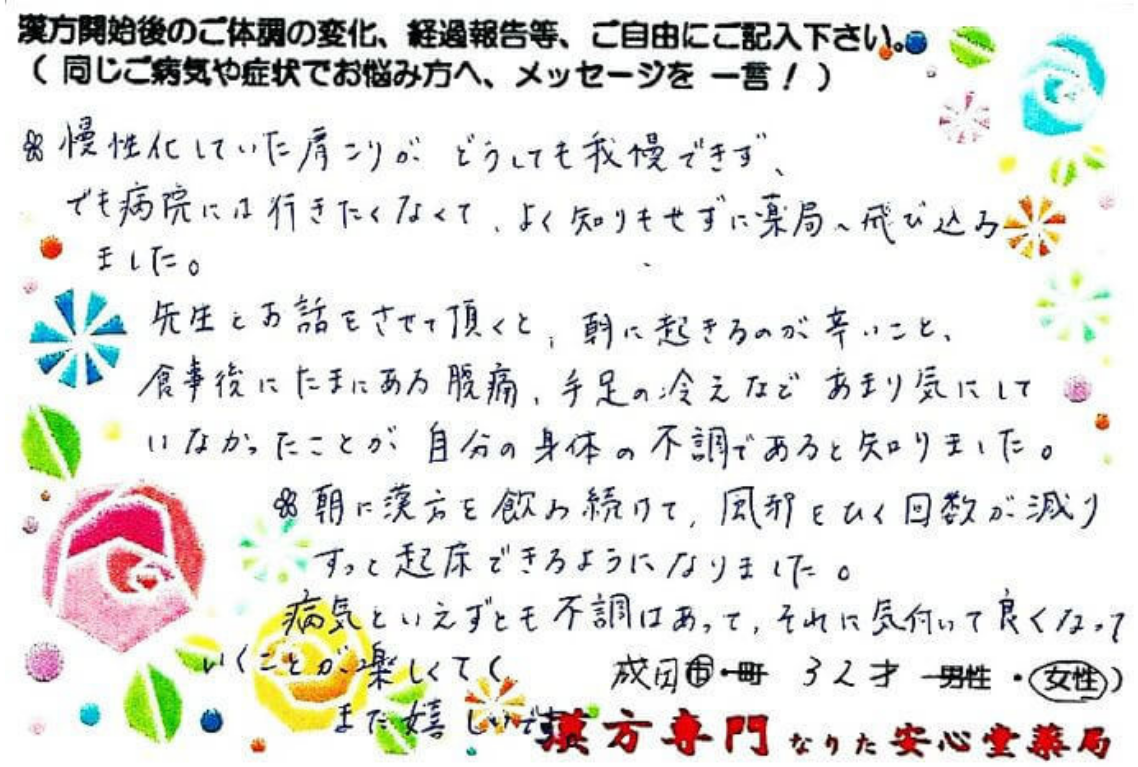 漢方開始後のご体調の変化、経過報告等、ご自由にご記入下さい。
( 同じご病気や症状でお悩み方へ、メッセージを 一言！)
慢性化していた肩こりが どうしても我慢できず、
でも病院には行きたくなくて、よく知りもせずに薬局へ飛び込み
ました。
先生とお話をさせて頂くと、朝に起きるのが辛いこと、
食事後にたまにある腹痛、手足の冷えなど あまり気にして
いなかったことが 自分の身体の不調であると知りました。
朝に漢方を飲み続けて、風邪をひく回数が減り
すっと起床できるようになりました。
病気といえずとも不調はあって、それに気付いて良くなって
いくことが楽しくて(
また嬉しいです。
成田市・町 32才 男性・女性)
漢方専門 なりた 安心堂薬局